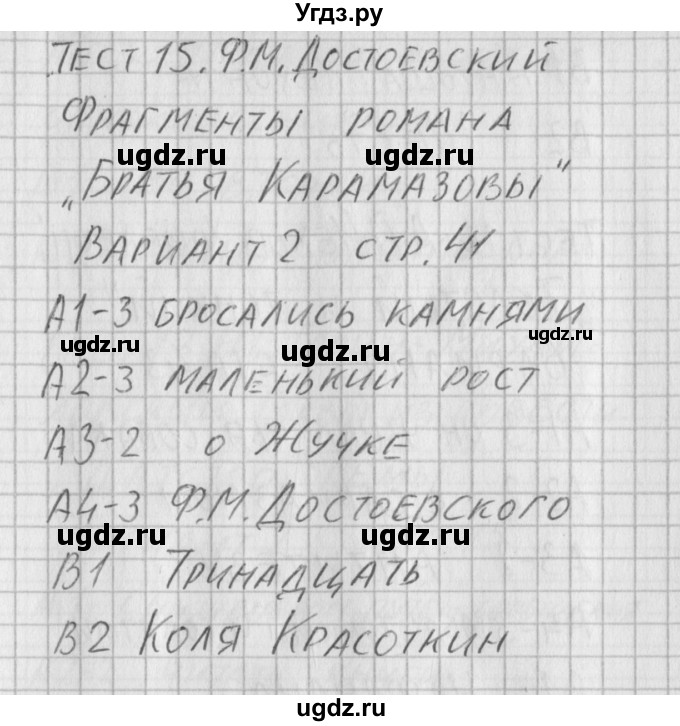 Угдз.ру
Тест 15. Ф.М. Достоевский
Фрагменты романа
ugdz.ru ugdz.ru
„Братья Карамазовы"
Вариант 2 стр. 41
А1-3 бросались камнями
ugdz.ru ugdz.ru ugdz.ru
А2-3 маленький рост
А3-2 о Жучке
А4-3 Ф.М. Достоевского
ugdz.ru ugdz.ru
В1 Тринадцать
В2 Коля Красоткин
ugdz.ru